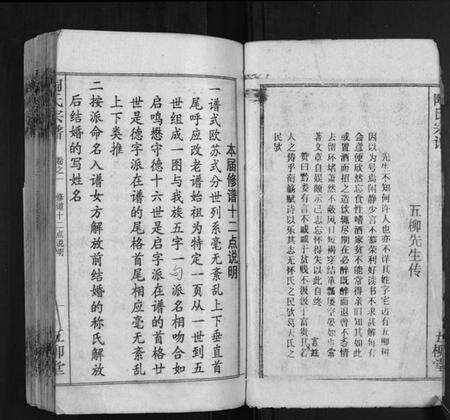 五柳先生传
先生不知何许人也亦不详其姓字宅边有五柳树
因以为号焉闲静少言不慕荣利好读书不求甚解每有
会意便欣然忘食性嗜酒家贫不能常得亲旧知其如此
或置酒而招之造饮辄尽期在必醉既醉而退曾不吝情
去留环堵萧然不蔽风日短褐穿结箪瓢屡空晏如也常
著文章自娱颇示己志忘怀得失以此自终
赞曰黔娄有言不戚戚于贫贱不汲汲于富贵其言
人之俦乎衔觞赋诗以乐其志无怀氏之民欤葛天氏之
民欤
五柳堂
本届修谱十二点说明
一谱式欧苏式分世列系毫无紊乱上下垂直首
尾呼应改老谱始祖为特定一页从一世到五
世组成一图与我族五字一句派名相吻合如
启鸣懋守德十六世是启字派在谱的首格廿
世是德字派在谱的尾格首尾相应毫无紊乱
上下类推
二按派命名入谱女方解放前结婚的称氏解放
后结婚的写姓名
陶氏宗谱 卷之一 修谱十二点说明 五柳堂